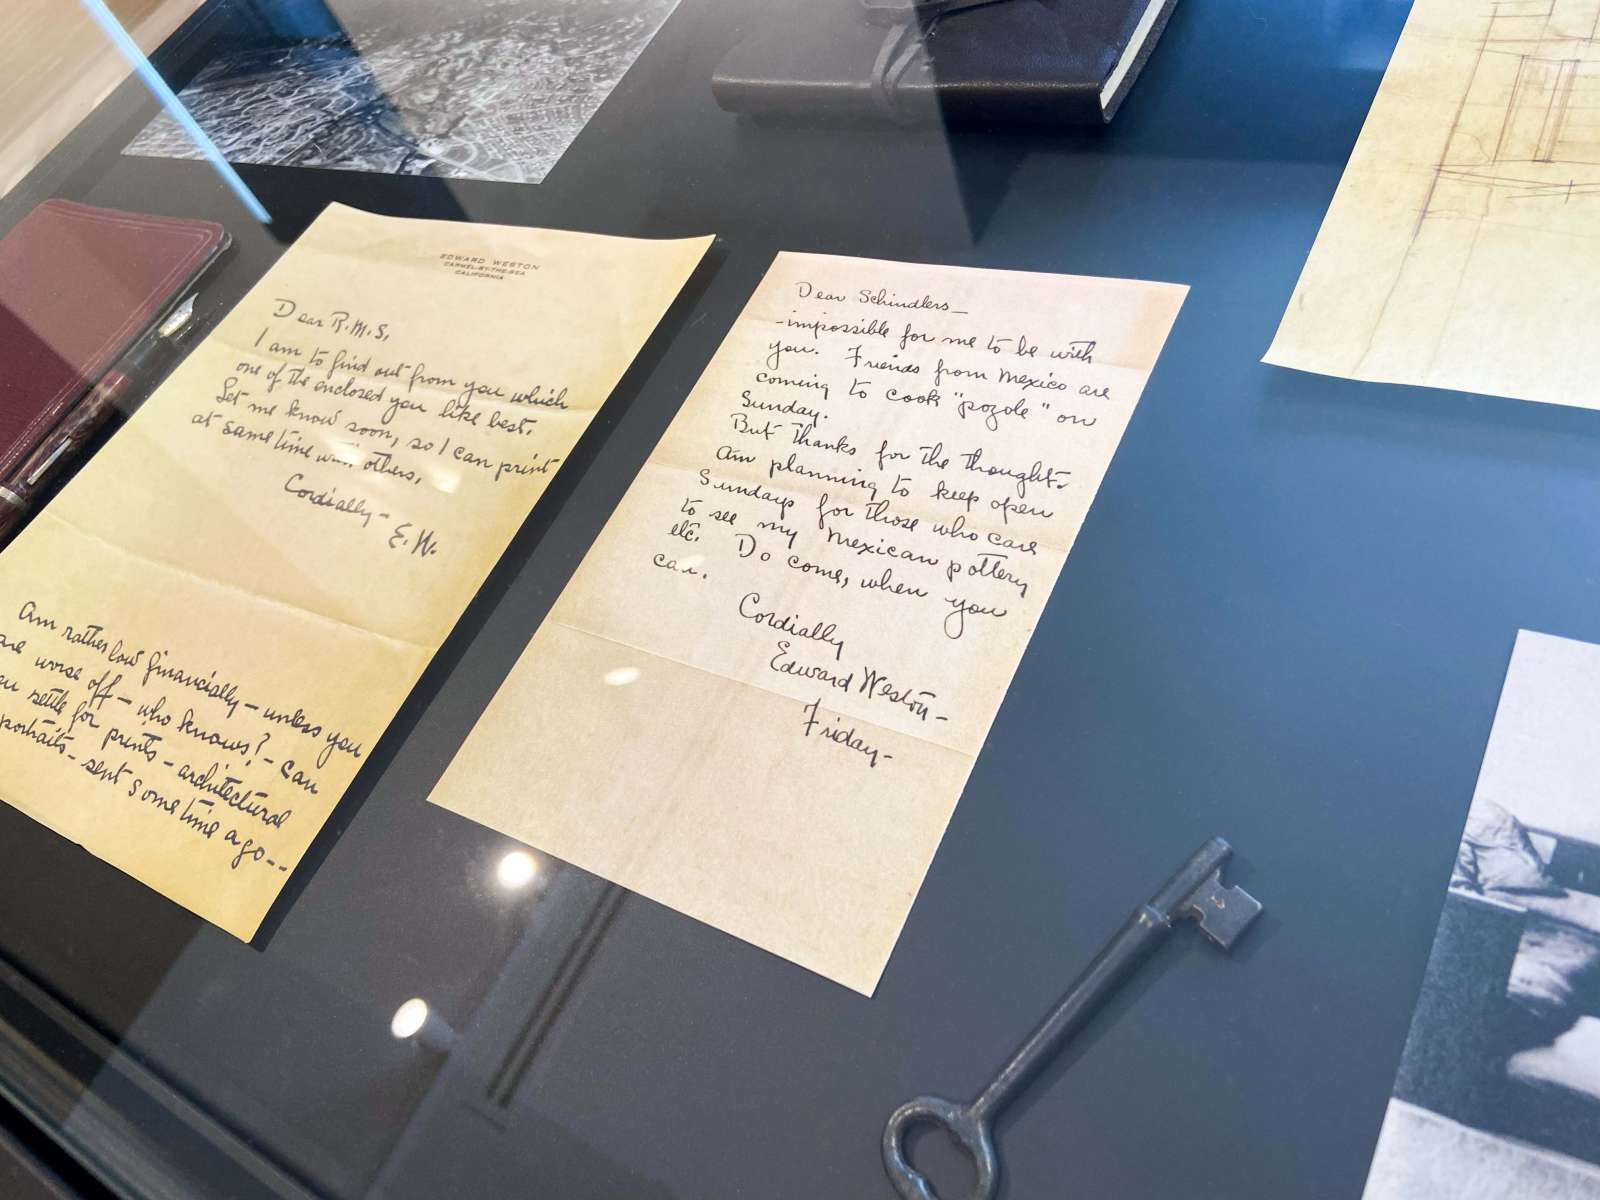 EDWARD WESTON
CARMEL-BY-THE-SEA
CALIFORNIA
Dear R.M.S,
I am to find out from you which
one of the enclosed you like best.
Let me know soon, so I can print
at same time with others,
Cordially –
E. W.
Am rather low financially – unless you
are worse off – who knows? – can
settle for prints – architectural
portraits – sent some time ago --
Dear Schindlers –
– impossible for me to be with
you. Friends from Mexico are
coming to cook "pozole" on
Sunday.
But thanks for the thought.
Am planning to keep open
Sundays for those who care
to see my Mexican pottery
etc. Do come, when you
can.
Cordially
Edward Weston –
Friday –